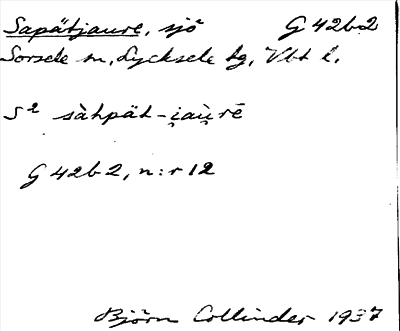 Sapätjaure, sjö G 42b2
Sorsele sn, Lycksele tg, Vbt l.
S² sàhpät-i̯au̯rē
G 42b2, n:r 12
Björn Collinder 1937